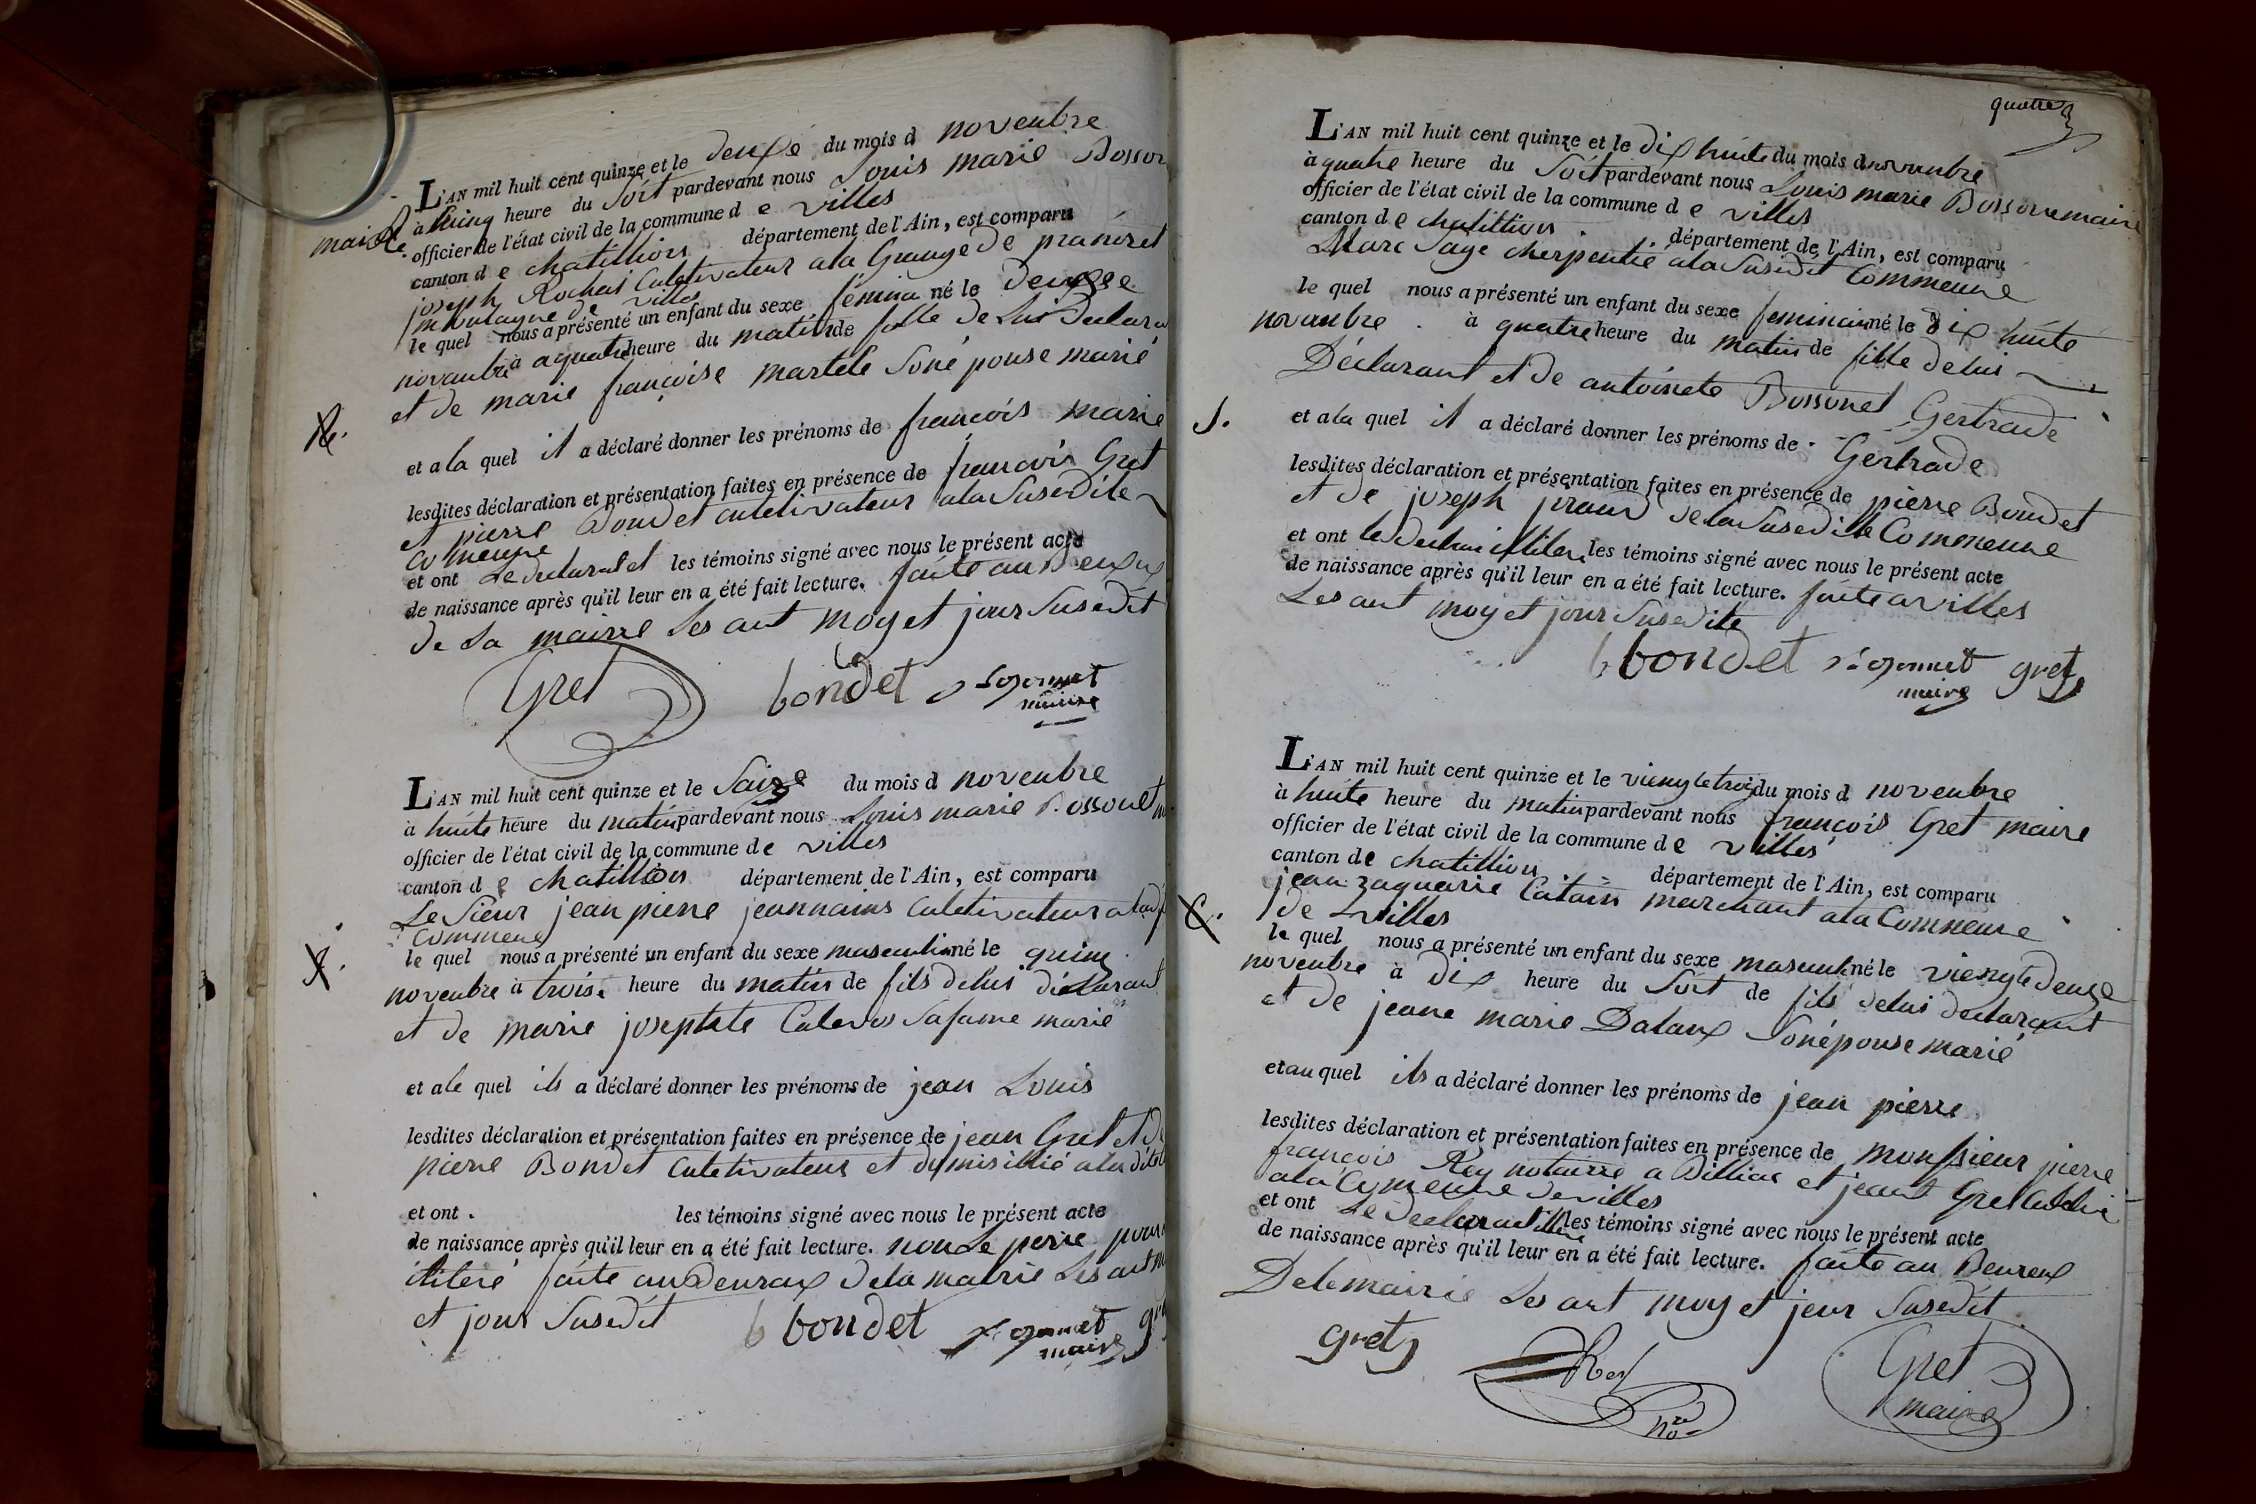 L'AN mil huit cent quinze et le deuxe du mois d novenbre
à Suinq heure du Soit pardevant nous Louis marie Bosson
maire officier de l'état civil de la commune d e villes
canton d e chatillion département de l'Ain, est comparu
joseph Rochat Culetivateur ala Grange de
montagne de villes
le quel nous a présenté un enfant du sexe fémina né le deuxee
novanbre à aquatre heure du matin de fille de Lui Declara
et de marie françoise martele Soné pouse marié
et a la quel il a déclaré donner les prénoms de francois marie
lesdites déclaration et présentation faites en présence de francois Gret
et pierre Bondet culetivateur ala Susedite
Comeune
et ont Le declarat et les témoins signé avec nous le présent acte
de naissance après qu'il leur en a été fait lecture. faite au Beuxux
de La mairre Les ant moy et jour Susedit
Gret bondet maire
L'AN mil huit cent quinze et le Saize du mois d novenbre
à huite heure du matin pardevant nous Louis marie Bossonet
officier de l'état civil de la commune d e villes
canton d e chatillion département de l'Ain, est comparu
Le Sieur jean pierre jeannains Culetivateur a ladi
Commene
le quel nous a présenté un enfant du sexe masculin né le quinz
novenbre à trois heure du matin de fils delui déclarant
et de marie josephte Safame marié
et ale quel ils a déclaré donner les prénoms de jean Louis
lesdites déclaration et présentation faites en présence de jean Gret et de
pierre Bondet Culetivateur et dymisillié a la dite
et ont les témoins signé avec nous le présent acte
de naissance après qu'il leur en a été fait lecture. non Le perre pour
itiléré faite au Beuraux dela mairie Les ant m
et jour Susedit b bondet maire gr
quatre
L'AN mil huit cent quinze et le dix huite du mois d novanbre
à quatre heure du Soit pardevant nous Louis marie Bossone maire
officier de l'état civil de la commune d e villes
canton d e chatillion département de l'Ain, est comparu
Marc Sage cherpentié ala Susedit Commeune
le quel nous a présenté un enfant du sexe feminain né le dix huite
novanbre à quatre heure du matin de fille delui
Déclarant et de antoinete Bossonet Gertrade
et ala quel il a déclaré donner les prénoms de Gertrade
lesdites déclaration et présentation faites en présence de pierre Bondet
et de joseph jiraud dela Susedite Commeune
et ont le les témoins signé avec nous le présent acte
de naissance après qu'il leur en a été fait lecture. faite a villes
Les ant moy et jour Susedite
b bondet maire gret
L'AN mil huit cent quinze et le viengtetroiz du mois d novenbre
à huite heure du matin pardevant nous françois Gret maire
officier de l'état civil de la commune d e villes
canton de chatillion département de l'Ain, est comparu
jean zaquarie Catain marchant ala Commeune
de villes
le quel nous a présenté un enfant du sexe masculin né le viengtedeuze
novenbre à dix heure du Soit de fils delui declarant
et de jeane marie Dalaux Sonépouse marié
et au quel ils a déclaré donner les prénoms de jean pierre
lesdites déclaration et présentation faites en présence de monssieur pierre
francois Rey notairre a Billiac et jeant Gret
ala Cymeune de villes
et ont Le declarant les témoins signé avec nous le présent acte
de naissance après qu'il leur en a été fait lecture. faite au Beureux
Delemairie Les ant moy et jour Susedit
gret Rey Gret
nre maire